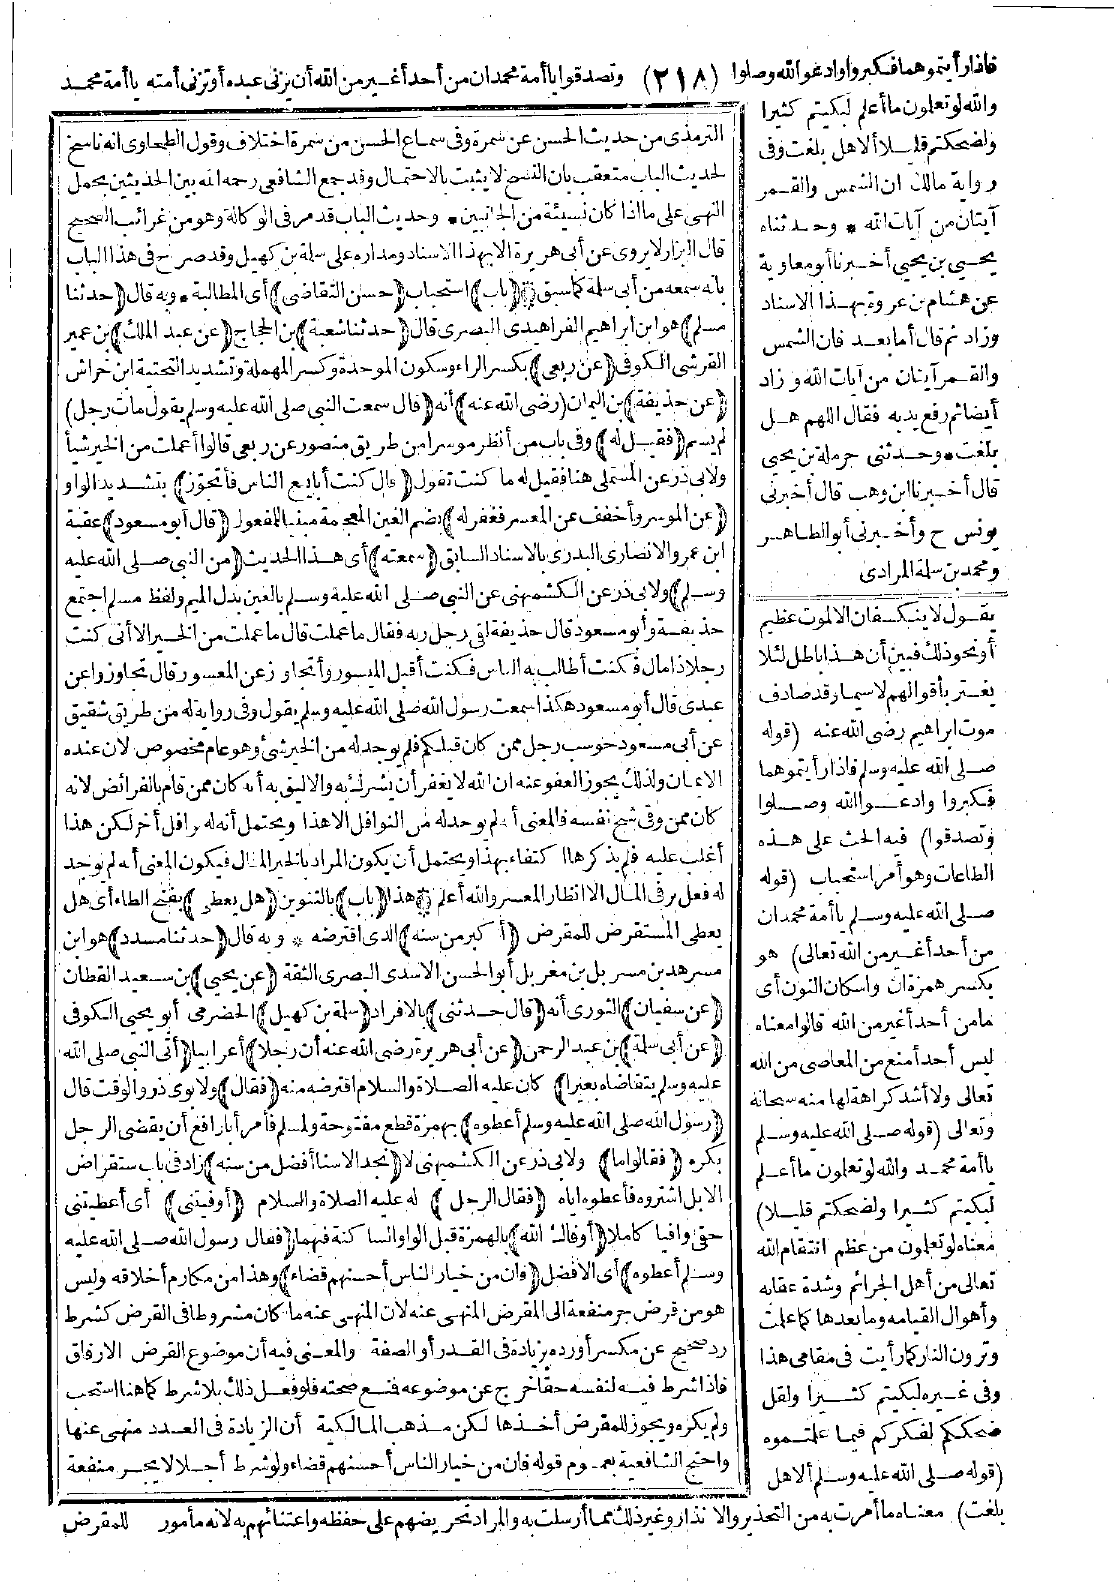 فاذا رأيتموهما فكبروا وادعوا الله وصلوا (٢١٨) وتصدقوا يا أمة محمد ان من أحد أغير من الله أن يزنى عبده أو تزنى أمته يا أمة محمد
والله لو تعلمون ما أعلم لبكيتم كثيرا
ولضحكتم قليلا ألا هل بلغت وفى
رواية مالك ان الشمس والقمر
آيتان من آيات الله * وحدثناه
يحيى بن يحيى أخبرنا أبو معاوية
عن هشام بن عروة بهذا الاسناد
وزاد ثم قال أما بعد فان الشمس
والقمر آيتان من آيات الله وزاد
أيضا ثم رفع يديه فقال اللهم هل
بلغت * وحدثنى حرملة بن يحيى
قال أخبرنا ابن وهب قال أخبرنى
يونس ح وأخبرنى أبو الطاهر
ومحمد بن سلمة المرادى
يقول لا ينكسفان الا لموت عظيم
أو نحو ذلك فبين أن هذا باطل لئلا
يغتر بأقوالهم لا سيما وقد صادف
موت ابراهيم رضى الله عنه (قوله
صلى الله عليه وسلم فاذا رأيتموهما
فكبروا وادعوا الله وصلوا
وتصدقوا) فيه الحث على هذه
الطاعات وهو أمر استحباب (قوله
صلى الله عليه وسلم يا أمة محمد ان
من أحد أغير من الله تعالى) هو
بكسر همزة ان واسكان النون أى
ما من أحد أغير من الله قالوا معناه
ليس أحد أمنع من المعاصى من الله
تعالى ولا أشد كراهة لها منه سبحانه
وتعالى (قوله صلى الله عليه وسلم
يا أمة محمد والله لو تعلمون ما أعلم
لبكيتم كثيرا ولضحكتم قليلا)
معناه لو تعلمون من عظم انتقام الله
تعالى من أهل الجرائم وشدة عقابه
وأهوال القيامة وما بعدها كما علمت
وترون النار كما رأيت فى مقامى هذا
وفى غيره لبكيتم كثيرا ولقل
ضحككم لفكركم فيما علمتموه
(قوله صلى الله عليه وسلم ألا هل
بلغت) معناه ما أمرت به من التحذير والانذار وغير ذلك مما أرسلت به والمراد تحريضهم على حفظه واعتنائهم به لانه مأمور
الترمذى من حديث الحسن عن سمرة وفى سماع الحسن من سمرة اختلاف وقول الطحاوى انه ناسخ
لحديث الباب متعقب بان النسخ لا يثبت بالاحتمال وقد جمع الشافعى رحمه الله بين الحديثين بحمل
النهى على ما اذا كان نسيئة من الجانبين * وحديث الباب قد مر فى الوكالة وهو من غرائب الصحيح
قال البزار لا يروى عن أبى هريرة الا بهذا الاسناد ومداره على سلمة بن كهيل وقد صرح فى هذا الباب
بأنه سمعه من أبى سلمة كما سبق (باب) استحباب (حسن التقاضى) أى المطالبة * وبه قال (حدثنا
مسلم) هو ابن ابراهيم الفراهيدى البصرى قال (حدثنا شعبة) بن الحجاج (عن عبد الملك) بن عمير
القرشى الكوفى (عن ربعى) بكسر الراء وسكون الموحدة وكسر المهملة وتشديد التحتية ابن خراش
(عن حذيفة) بن اليمان (رضى الله عنه) أنه (قال سمعت النبى صلى الله عليه وسلم يقول مات رجل)
لم يسم (فقيل له) وفى باب من أنظر موسرا من طريق منصور عن ربعى قالوا أعملت من الخير شيأ
ولابى ذر عن المستملى هنا فقيل له ما كنت تقول (قال كنت أبايع الناس فأتجوّز) بتشديد الواو
(عن الموسر وأخفف عن المعسر فغفر له) بضم الغين المعجمة مبنيا للمفعول (قال أبو مسعود) عقبة
ابن عمرو الانصارى البدرى بالاسناد السابق (سمعته) أى هذا الحديث (من النبى صلى الله عليه
وسلم) ولابى ذر عن الكشميهنى عن النبى صلى الله عليه وسلم بالعين بدل الميم ولفظ مسلم اجتمع
حذيفة وأبو مسعود قال حذيفة لقى رجل ربه فقال ما عملت قال ما عملت من الخير الا أنى كنت
رجلا ذا مال فكنت أطالب به الناس فكنت أقبل الميسور وأتجاوز عن المعسور قال تجاوزوا عن
عبدى قال أبو مسعود هكذا سمعت رسول الله صلى الله عليه وسلم يقول وفى رواية له من طريق شقيق
عن أبى مسعود حوسب رجل ممن كان قبلكم فلم يوجد له من الخير شئ وهو عام مخصوص لان عنده
الايمان ولذلك يجوز العفو عنه ان الله لا يغفر أن يشرك به والاليق به أنه كان ممن قام بالفرائض لانه
كان ممن وقى شح نفسه فالمعنى أنه لم يوجد له من النوافل الا هذا ويحتمل أنه له نوافل أخر لكن هذا
أغلب عليه فلم يذكرها اكتفاء بهذا ويحتمل أن يكون المراد بالخير المال فيكون المعنى أنه لم يوجد
له فعل بر فى المال الا انظار المعسر والله أعلم هذا (باب) بالتنوين (هل يعطى) بفتح الطاء أى هل
يعطى المستقرض للمقرض (أكبر من سنه) الذى اقترضه * وبه قال (حدثنا مسدد) هو ابن
مسرهد بن مسربل بن مغربل أبو الحسن الاسدى البصرى الثقة (عن يحيى) بن سعيد القطان
(عن سفيان) الثورى أنه (قال حدثنى) بالافراد (سلمة بن كهيل) الحضرمى أبو يحيى الكوفى
(عن أبى سلمة) بن عبد الرحمن (عن أبى هريرة رضى الله عنه أن رجلا) أعرابيا (أتى النبى صلى الله
عليه وسلم يتقاضاه بعيرا) كان عليه الصلاة والسلام اقترضه منه (فقال) ولابوى ذر والوقت قال
(رسول الله صلى الله عليه وسلم أعطوه) بهمزة قطع مفتوحة ولمسلم فأمر أبا رافع أن يقضى الرجل
بكره (فقالوا ما) ولابى ذر عن الكشميهنى لا (نجد الا سنا أفضل من سنه) زاد فى باب استقراض
الابل اشتروه فأعطوه اياه (فقال الرجل) له عليه الصلاة والسلام (أوفيتنى) أى أعطيتنى
حقى وافيا كاملا (أوفاك الله) بالهمزة قبل الواو الساكنة فيهما (فقال رسول الله صلى الله عليه
وسلم أعطوه) أى الافضل (فان من خيار الناس أحسنهم قضاء) وهذا من مكارم أخلاقه وليس
هو من قرض جر منفعة الى المقرض المنهى عنه لان المنهى عنه ما كان مشروطا فى القرض كشرط
رد صحيح عن مكسر أو رده بزيادة فى القدر أو الصفة والمعنى فيه أن موضوع القرض الارفاق
فاذا شرط فيه لنفسه حقا خرج عن موضوعه فمنع صحته فلو فعل ذلك بلا شرط كما هنا استحب
ولم يكره ويجوز للمقرض أخذها لكن مذهب المالكية أن الزيادة فى العدد منهى عنها
واحتج الشافعية بعموم قوله فان من خيار الناس أحسنهم قضاء ولو شرط أجلا لا يجر منفعة
للمقرض